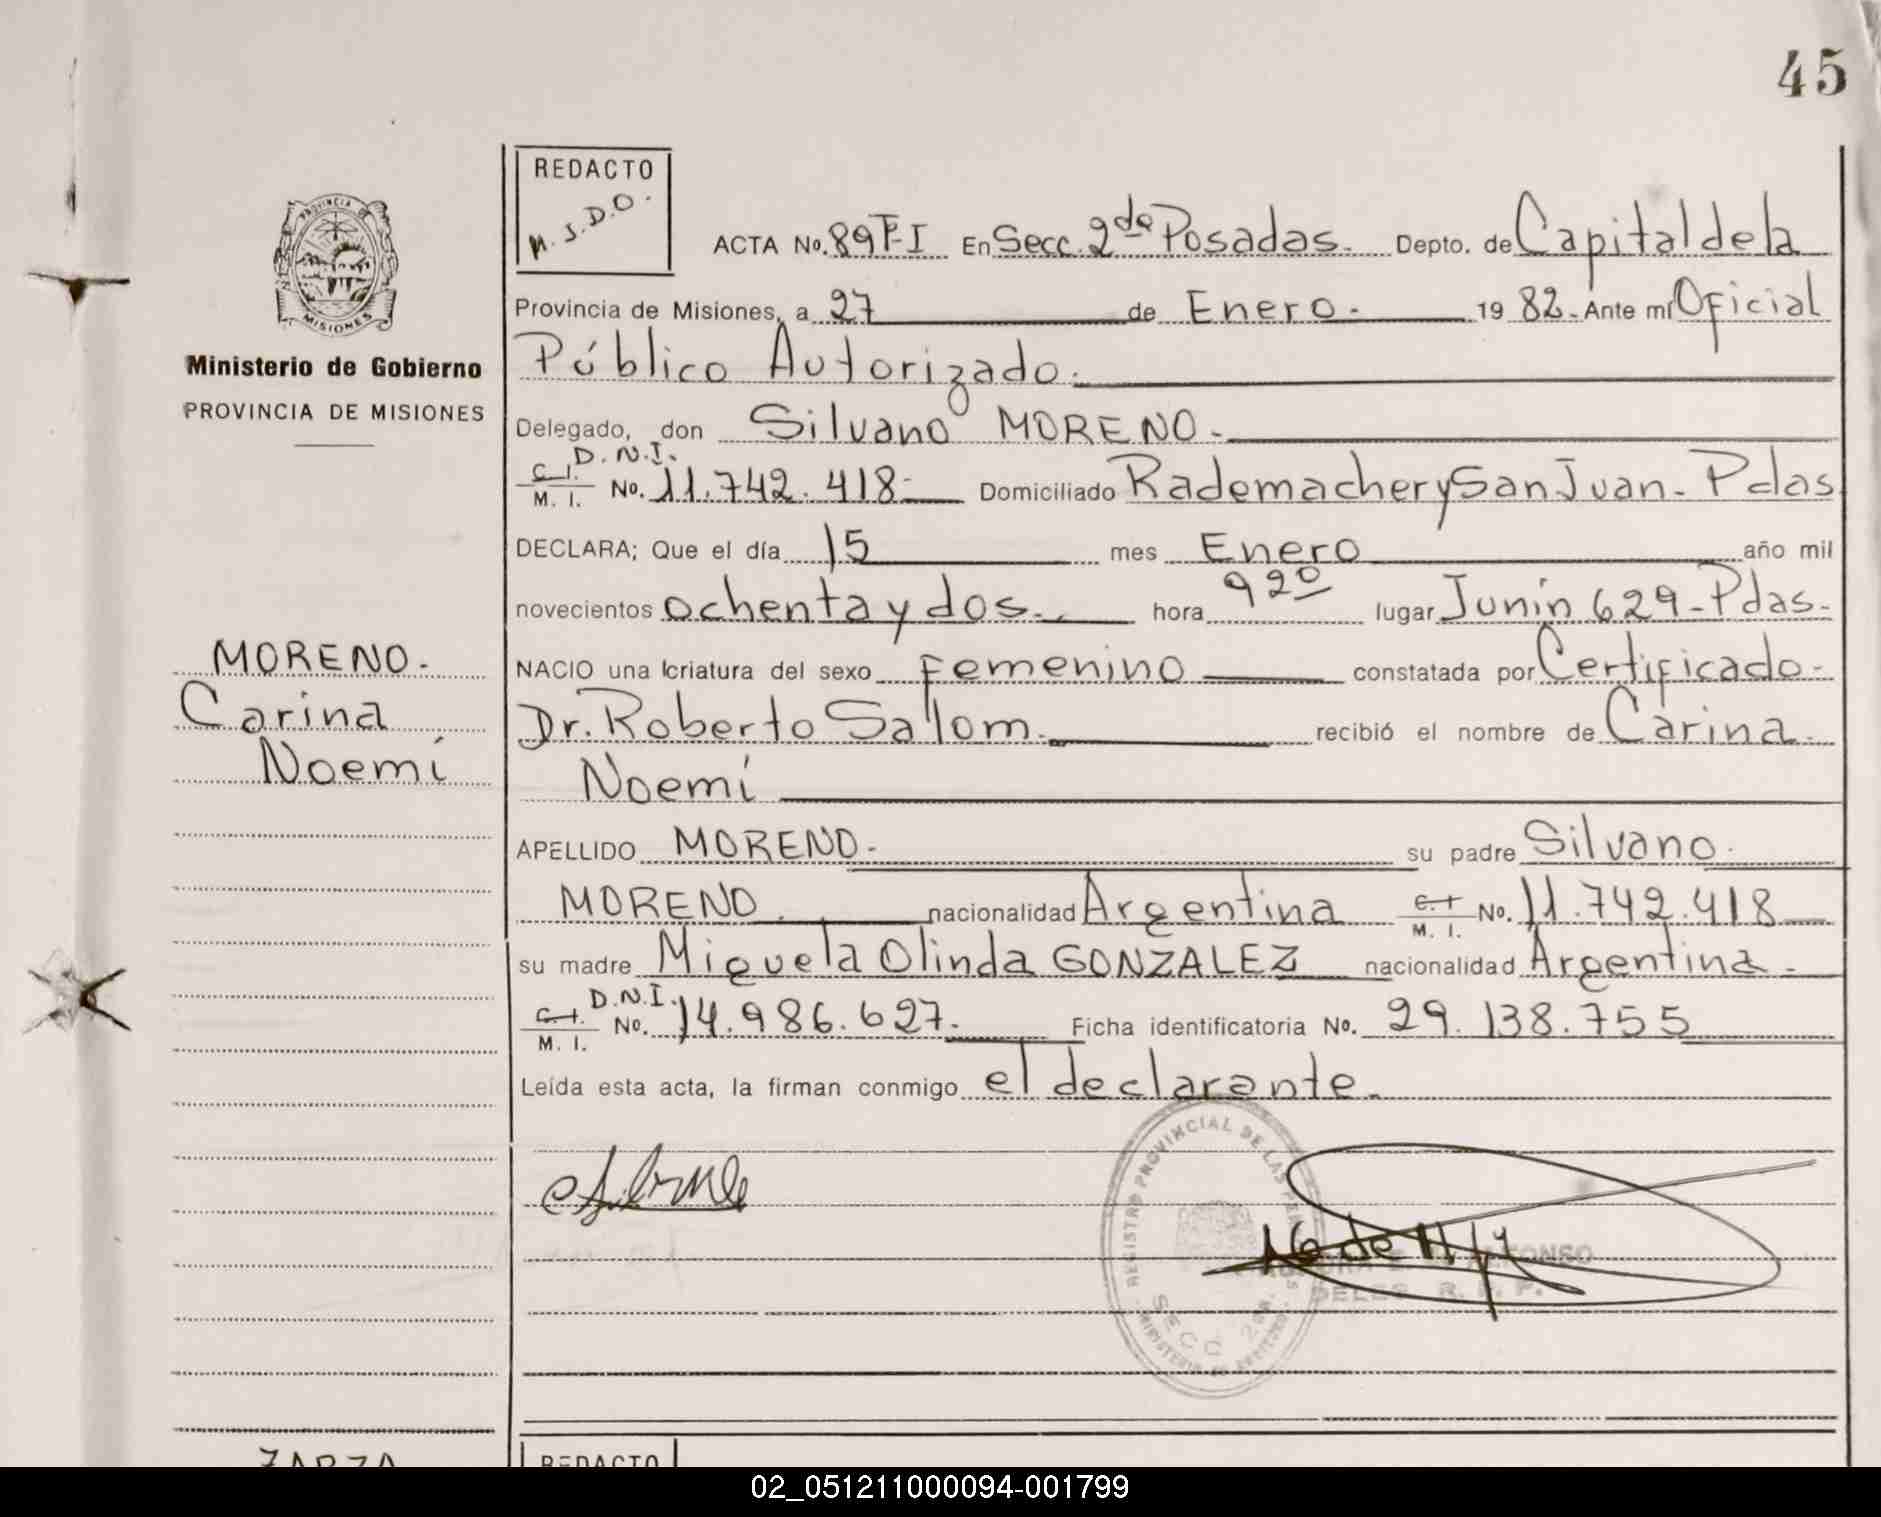 45
REDACTO
M.S.D.O.
PROVINCIA DE
MISIONES
Ministerio de Gobierno
PROVINCIA DE MISIONES
ACTA No. 89 T-I En Secc. 2da Posadas. Depto. de Capital de la
Provincia de Misiones, a 27 de Enero. 1982. Ante mí Oficial
Público Autorizado.
Delegado, don Silvano MORENO.
C.I. D.N.I.
M. I. No. 11.742.418 Domiciliado Rademacher y San Juan - Pdas
DECLARA; Que el día 15 mes Enero año mil
novecientos ochenta y dos. hora 9 20 lugar Junín 629 - Pdas.
NACIO una criatura del sexo femenino constatada por Certificado
Dr. Roberto Salom. recibió el nombre de Carina
Noemí
MORENO.
Carina
Noemí
APELLIDO MORENO. su padre Silvano
MORENO. nacionalidad Argentina C.I. M. I. No. 11.742.418
su madre Miguela Olinda GONZALEZ nacionalidad Argentina.
C.I. D.N.I.
M. I. No. 14.986.627. Ficha identificatoria No. 29.138.755
Leída esta acta, la firman conmigo el declarante.
REGISTRO PROVINCIAL DE LAS PERSONAS
SECC 2da.
ALFONSO
R. P.
ZARZA
REDACTO
02_051211000094-001799